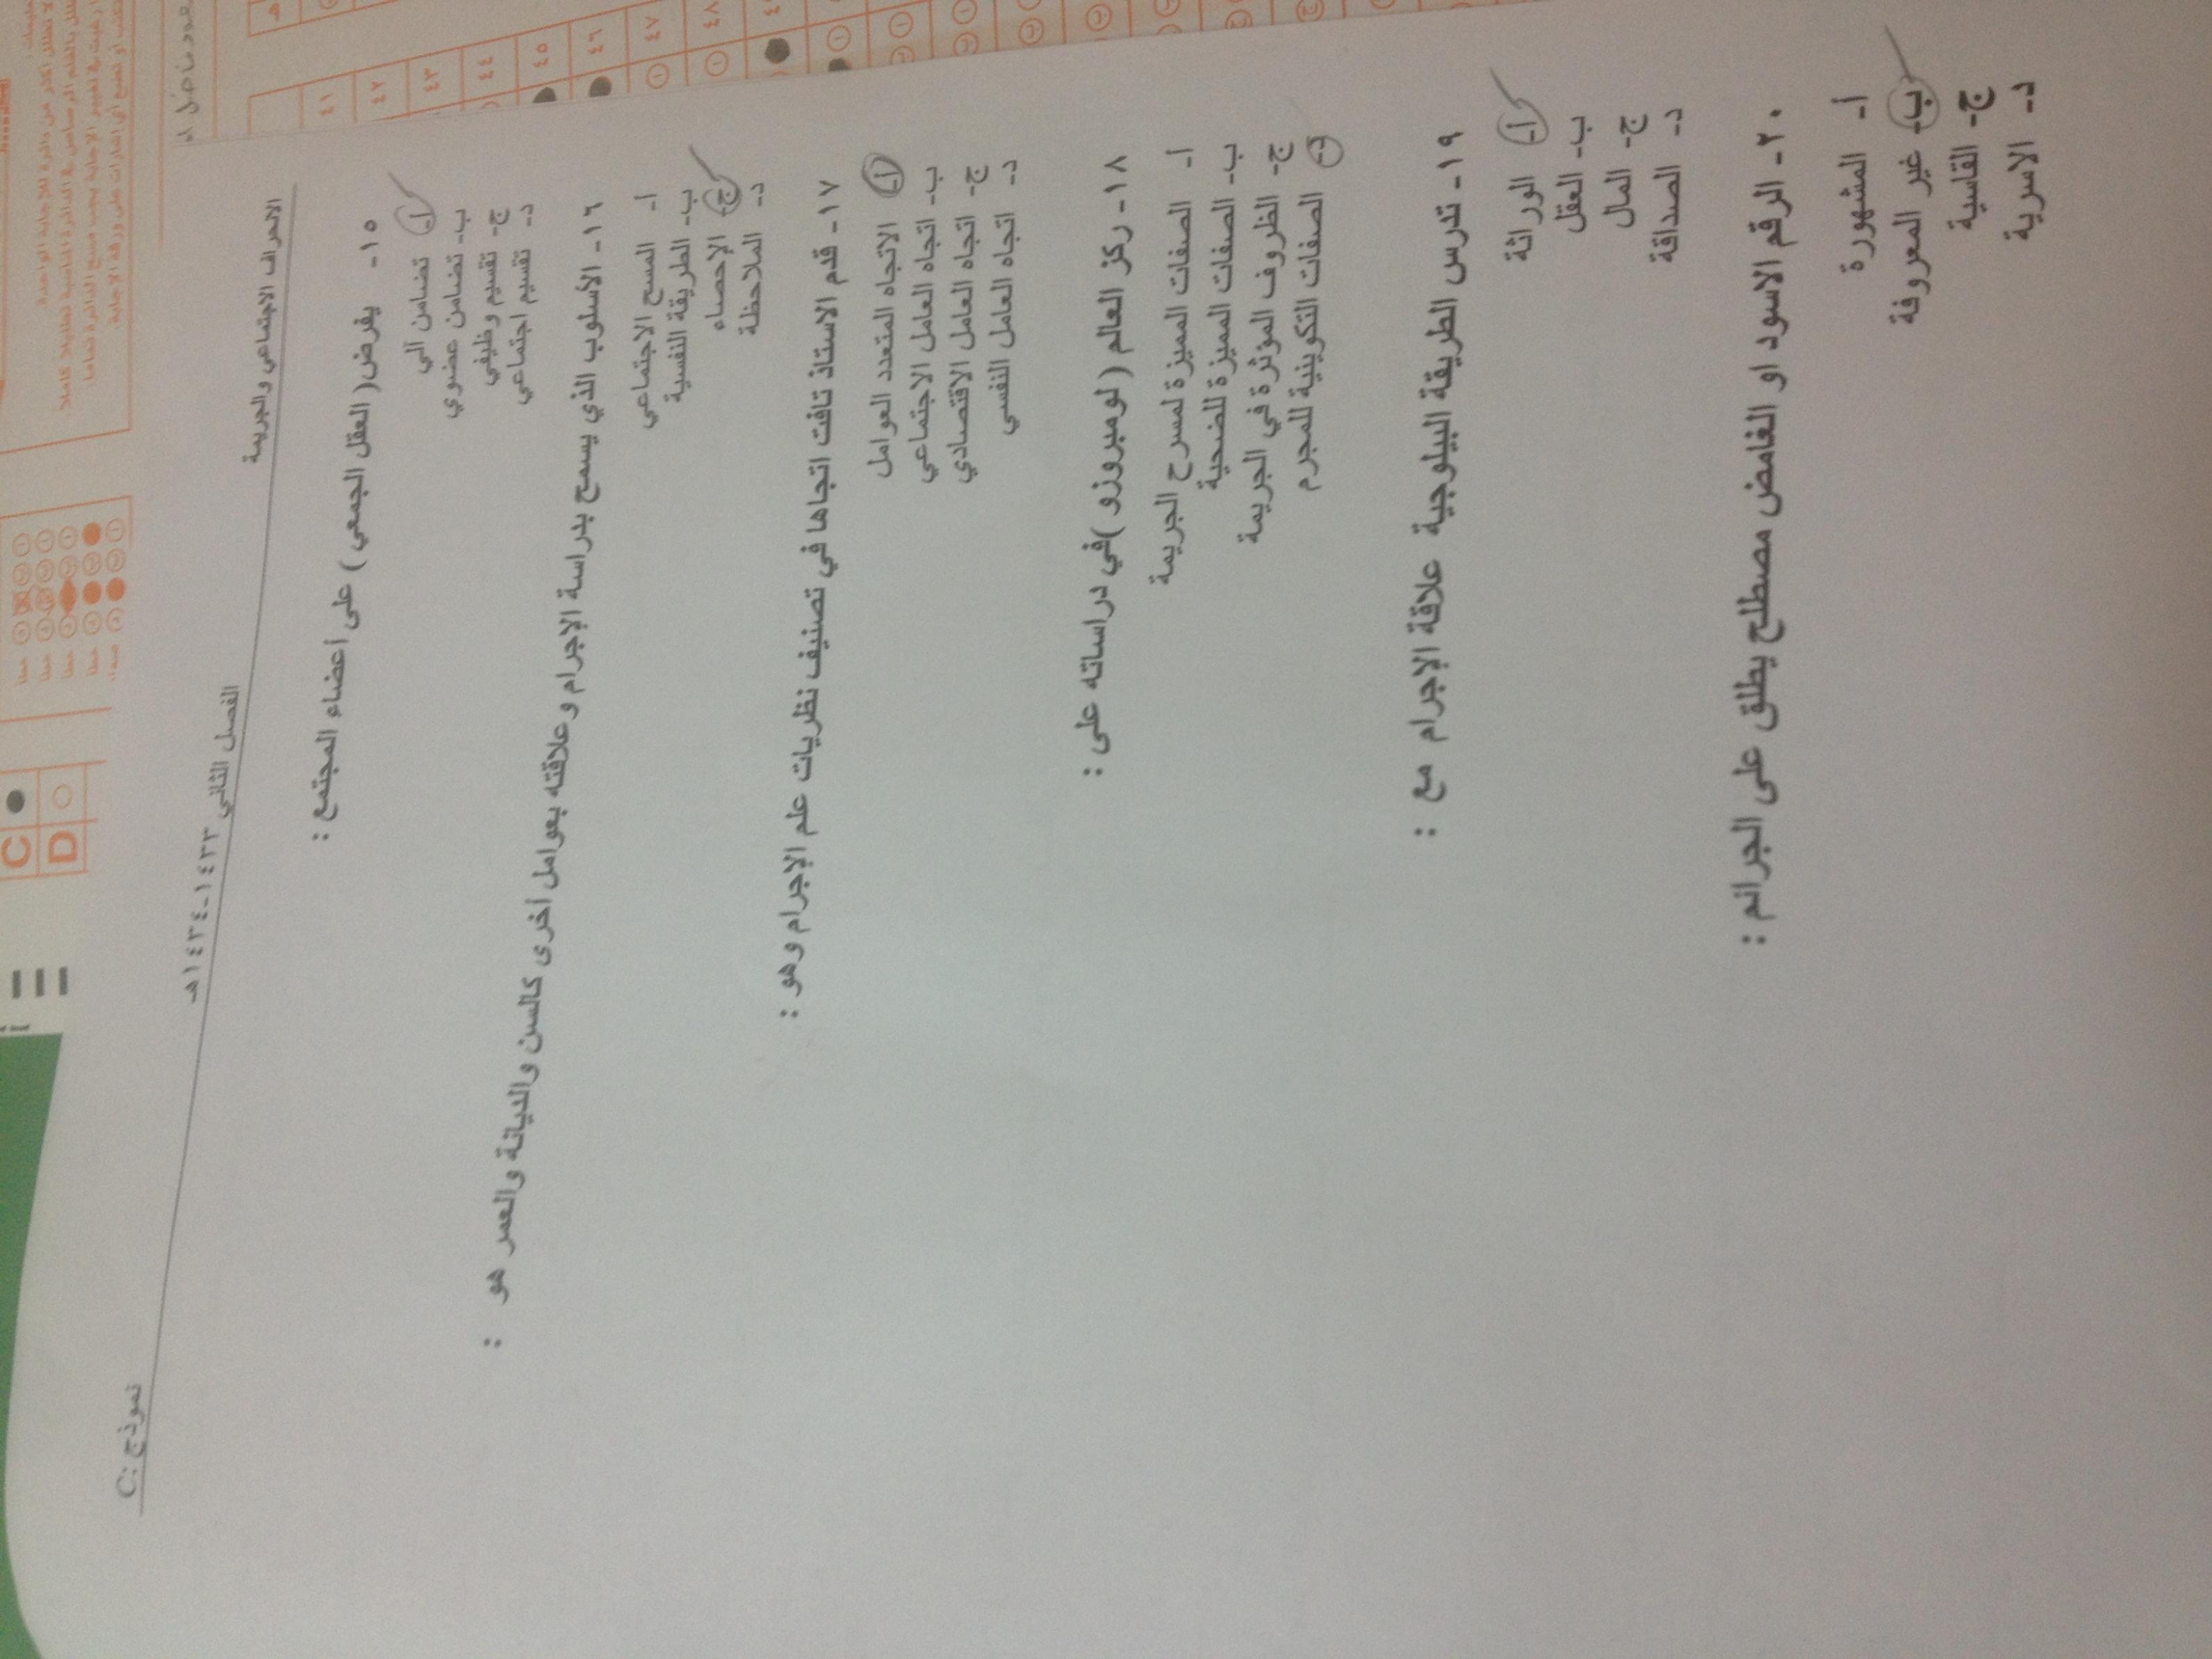 الانحراف الاجتماعي والجريمة
الفصل الثاني ١٤٣٣-١٤٣٤هـ
نموذج: C
١٥- يفرض( العقل الجمعي ) على أعضاء المجتمع :
أ- تضامن آلي
ب- تضامن عضوي
ج- تقسيم وظيفي
د- تقسيم اجتماعي
١٦- الأسلوب الذي يسمح بدراسة الإجرام وعلاقته بعوامل أخرى كالسن والديانة والعمر هو :
أ- المسح الاجتماعي
ب- الطريقة النفسية
ج- الإحصاء
د- الملاحظة
١٧- قدم الاستاذ تافت اتجاها في تصنيف نظريات علم الإجرام وهو :
أ- الاتجاه المتعدد العوامل
ب- اتجاه العامل الاجتماعي
ج- اتجاه العامل الاقتصادي
د- اتجاه العامل النفسي
١٨- ركز العالم ( لومبروزو )في دراساته على :
أ- الصفات المميزة لمسرح الجريمة
ب- الصفات المميزة للضحية
ج- الظروف المؤثرة في الجريمة
د- الصفات التكوينية للمجرم
١٩- تدرس الطريقة البيلوجية علاقة الإجرام مع :
أ- الوراثة
ب- العقل
ج- المال
د- الصداقة
٢٠- الرقم الاسود او الغامض مصطلح يطلق على الجرائم :
أ- المشهورة
ب- غير المعروفة
ج- القاسية
د- الاسرية
C
D
٤١
٤٢
٤٣
٤٤
٤٥
٤٦
٤٧
٤٨